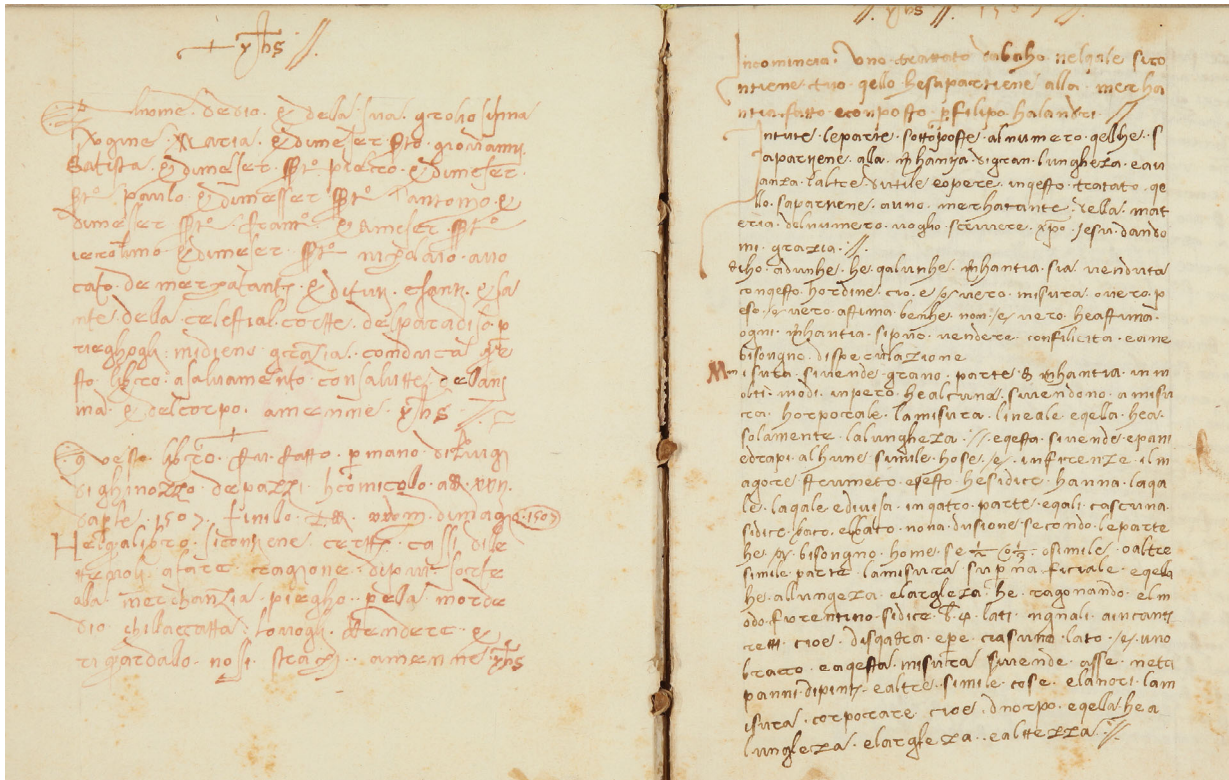 + yhs //
Alnome dedio & della sua groliosisima
vergine Maria & dimeser sto giovanni
batista & dimeser sto pietro & dimeser
sto paulo & dimesser sto antonio &
dimeser sto franco & dimeser sto
ierolimo & dimeser sto nicholaio avo
cato de merchatanti & dituti e santi e sa
nte della celestial corte del paradiso p
rieghogli midieno grazia conduca que
sto libro asalvamento con salute delani
ma & del corpo amenne yhs //
Questo libro fu fatto p mano di luigi
di ghinozzo de pazzi
daprle 1507 finito di magio 1507
Nelqalibro sicontiene certi casi dile
ttevoli afare ragione dipiu sorte
alla merchanzia priegho pella mor de
dio chillaccatta lo voglia rendere &
riguardalo no si straci amenne yhs
// yhs // 1507 //
Incomincia uno trattato dabacho nelqale sico
ntiene tuto qello hesapartiene alla mercha
ntia fatto econposto p filipo chalandri //
Intute leparte sottoposte alnumero qelhe s
apartiene alla mhantia digran lungheza eava
anza laltre dutile eopere inqesto tratato qe
llo sapartiene auno merchatante della mat
eria delnumero voglio scrivere xpo Jesu dando
mi grazia //
diho adunche he qalunche mhantia sia venduta
conqesto hordine cio e vero misura overo p
eso e vero astima benche non e vero heastima
ogni mhantia sipuo vendere confilicita eane
bisongno dispechulazione
Misura sivende grano parte & mhantia in m
olti modi inpero healcuna sivendono amisu
ra horporale lamisura lineale eqela hea
solamente lalungheza // eqesta sivende epani
edrapi alhune simile hose e infirenze il m
agore strumeto eqesto hesidice channa laqa
le laqale edivisa inqatro parte eqali ciascuna
sidice braco elbraco nona divisione secondo leparte
he bisongno home se 1/2 o 1/3 osimile oaltre
simile parte lamisura supnaficiale eqella
he allungeza elargeza he ragonando elm
odo fiorentino sidice b q lati inqnali aincanti
retti cioe disqadra epe ciascuno lato e uno
bracco eaqesta misura sivende asse neta
panni dipinti ealtre simile cose elanori lam
isura corporare cioe dnorpo eqela hea
lungheza elargheza ealtezza //